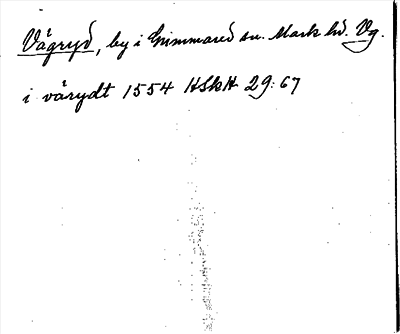 Vägryd, by i Grimmared sn. Mark hd. Vg.
i värydt 1554 HSkH 29:67